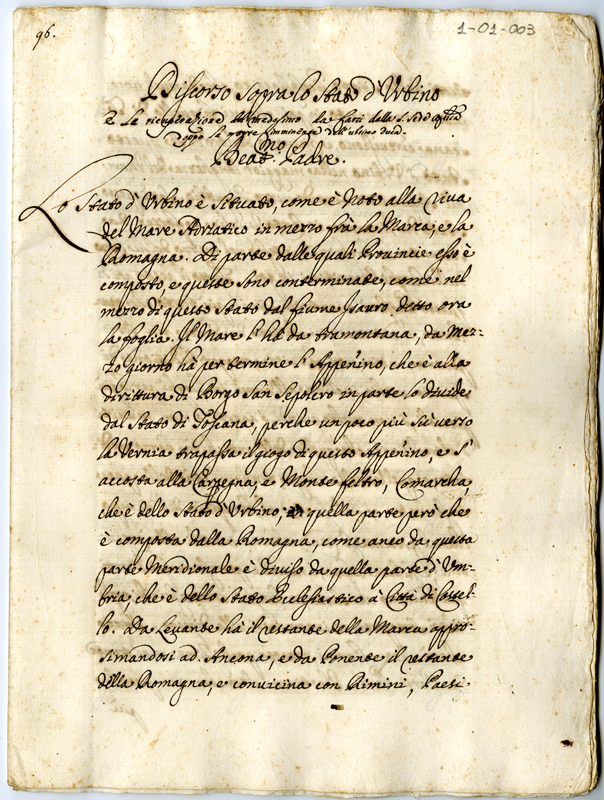 96.
1-01-003
Discorso sopra lo Stato d'Urbino
E la ricuperatione del medesimo da farsi dalla S. Sede Aplica
doppo la morte imminente dell'ultimo Duca.
Beat.mo Padre.
Lo Stato d'Urbino è situato, come è noto alla riva
del Mare Adriatico in mezzo frà la Marca, e la
Romagna. Di parte dalle quali Provincie esso è
composto, e queste sono conterminate, come nel
mezzo di questo Stato dal fiume Isauro detto ora
la foglia. Il Mare l'hà da tramontana, da Mez-
zo giorno hà per termine l'Appenino, che è alla
dirittura di Borgo San Sepolcro in parte lo divide
dal Stato di Toscana, perche un poco più sù verso
la Vernia trapassa il giogo di questo Appenino, e s'
accosta alla Carpegna, e Monte feltro, Comarcha,
che è dello Stato d'Urbino, quella parte però che
è composta dalla Romagna, come anco da questa
parte Meridionale è diviso da quella parte d'Um-
bria, che è dello Stato Ecclesiastico à Città di Castel-
lo. Da Levante hà il restante della Marca appros-
simandosi ad Ancona, e da Ponente il restante
della Romagna, e convicina con Rimini, Paesi